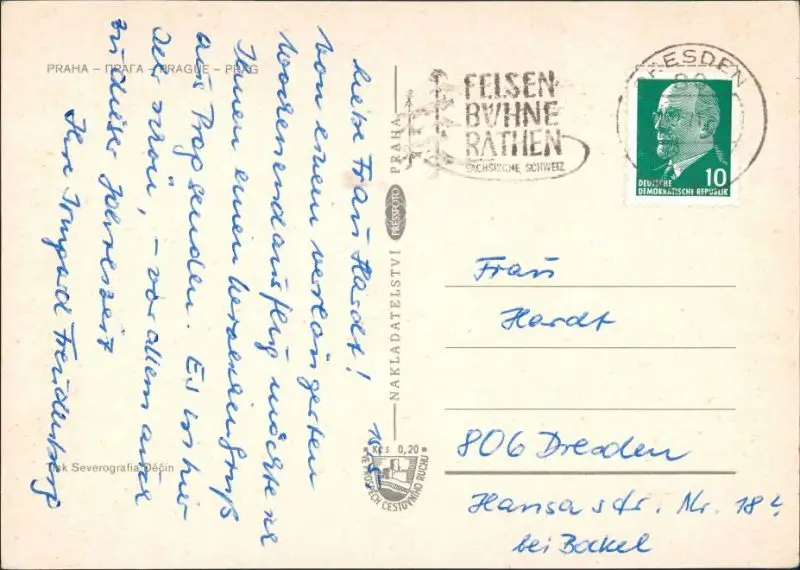 PRAHA – ПРАГА – PRAGUE – PRAG
Liebe Frau Hardt!
Von einem verlängerten
Wochenendausflug möchte ich
Ihnen einen Urlaubsgruß
aus Prag senden. Es ist hier
sehr schön, – vor allem auch
zu dieser Jahreszeit
Ihre Irmgard
Tisk Severografia Děčín
NAKLADATELSTVÍ PRESSFOTO PRAHA
Kčs 0,20
VE PROSPĚCH CESTOVNÍHO RUCHU
FELSEN
BÜHNE
RATHEN
SÄCHSISCHE SCHWEIZ
DRESDEN
10
DEUTSCHE
DEMOKRATISCHE REPUBLIK
Frau
Hardt
806 Dresden
Hansastr. Nr. 18
bei Bockel